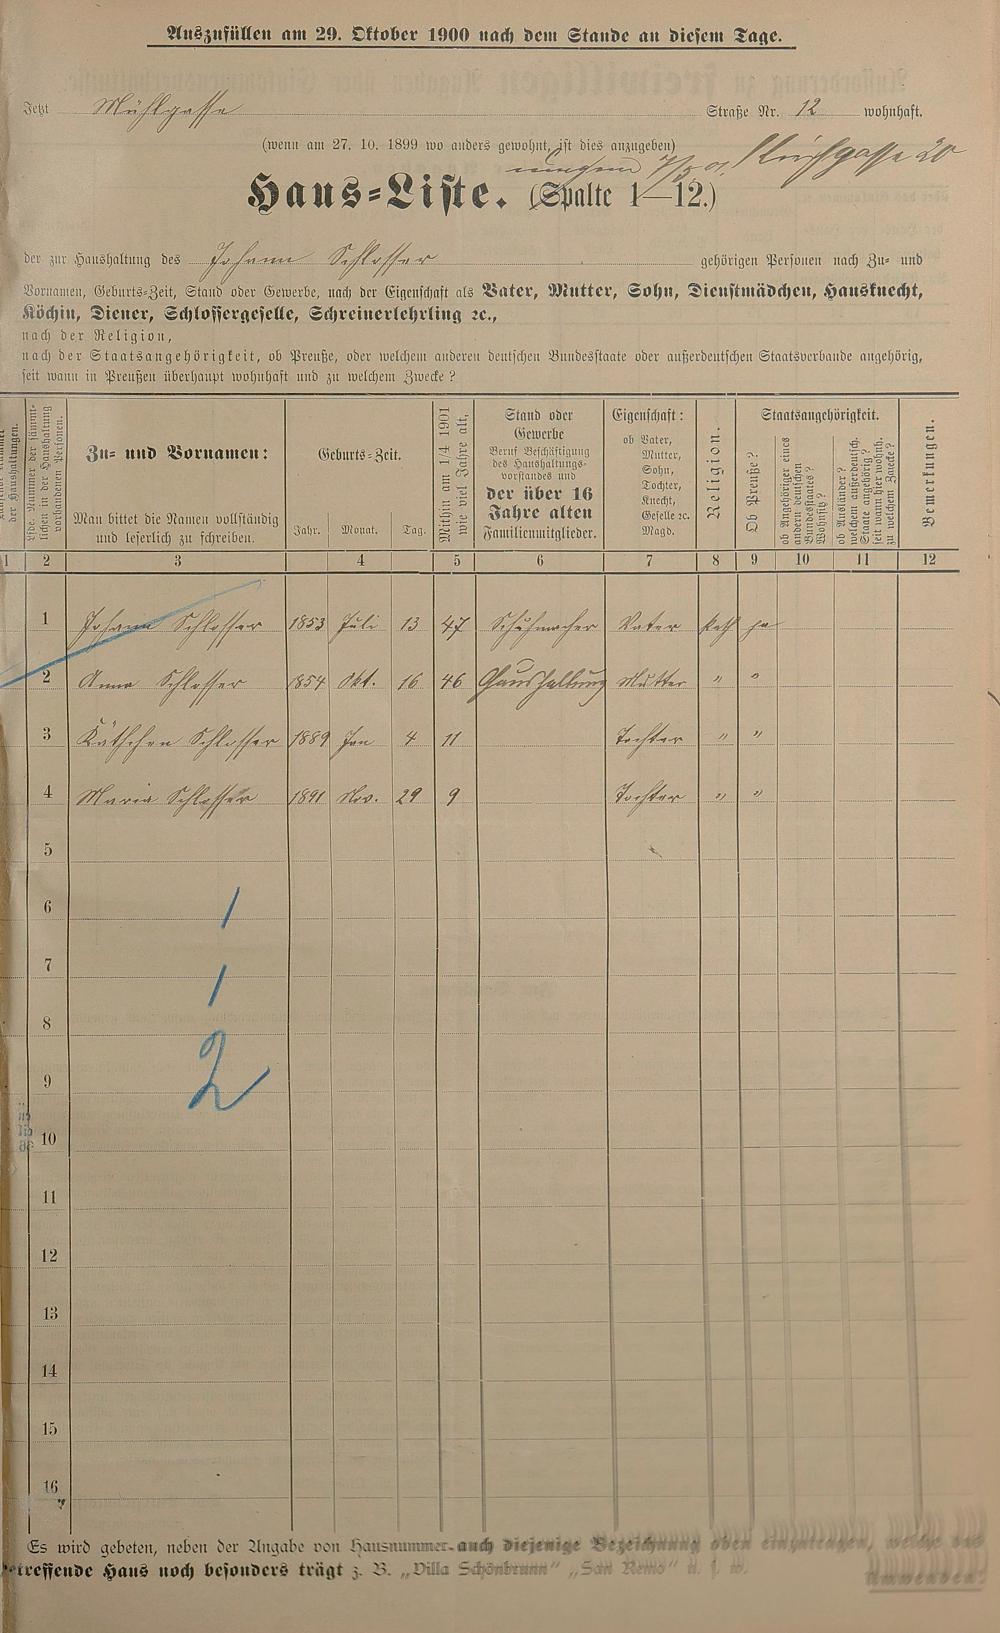 Auszufüllen am 29. Oktober 1900 nach dem Stande an diesem Tage.
Jetzt Mühlgasse Straße Nr. 12 wohnhaft.
(wenn am 27. 10. 1899 wo anders gewohnt, ist dies anzugeben)
Kirchgasse 20
Haus-Liste. (Spalte 1—12.)
der zur Haushaltung des Johann Schlosser gehörigen Personen nach Zu- und
Vornamen, Geburts-Zeit, Stand oder Gewerbe, nach der Eigenschaft als Vater, Mutter, Sohn, Dienstmädchen, Hausknecht,
Köchin, Diener, Schlossergeselle, Schreinerlehrling ꝛc.,
nach der Religion,
nach der Staatsangehörigkeit, ob Preuße, oder welchem anderen deutschen Bundesstaate oder außerdeutschen Staatsverbande angehörig,
seit wann in Preußen überhaupt wohnhaft und zu welchem Zwecke?
der Haushaltungen.
Lfde. Nummer der sämmt-
lichen in der Haushaltung
vorhandenen Personen.
Zu- und Vornamen:
Man bittet die Namen vollständig
und leserlich zu schreiben.
Geburts-Zeit.
Jahr. Monat. Tag.
Mithin am 1/4 1901
wie viel Jahre alt,
Stand oder
Gewerbe
Beruf Beschäftigung
des Haushaltungs-
vorstandes und
der über 16
Jahre alten
Familienmitglieder.
Eigenschaft:
ob Vater,
Mutter,
Sohn,
Tochter,
Knecht,
Geselle ꝛc.
Magd.
Religion.
Staatsangehörigkeit.
Ob Preuße?
ob Angehöriger eines
andern deutschen
Bundesstaates?
Wohnsitz?
ob Ausländer?
welchem außerdeutsch.
Staate angehörig?
seit wann hier wohnh.
zu welchem Zwecke?
Bemerkungen.
1 2 3 4 5 6 7 8 9 10 11 12
1 Johann Schlosser 1853 Juli 13 47 Schuhmacher Vater kath ja
2 Anna Schlosser 1854 Okt. 16 46 Haushaltung Mutter " "
3 Käthchen Schlosser 1889 Jan 4 11 Tochter " "
4 Maria Schlosser 1891 Nov. 29 9 Tochter " "
5
6 1
7 1
8
9 2
10
11
12
13
14
15
16
Es wird gebeten, neben der Angabe von Hausnummer auch diejenige Bezeichnung oben einzutragen, welche das
betreffende Haus noch besonders trägt z. B. „Villa Schönbrunn" „San Remo" u. s. w.